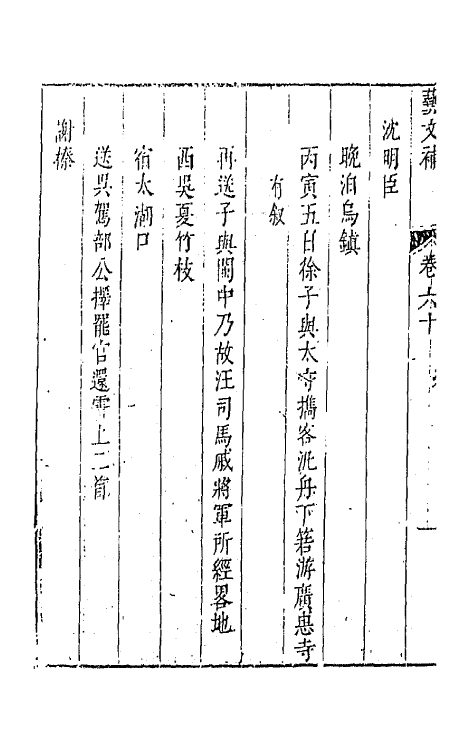 藝文補 卷六十
沈明臣
晚泊烏鎮
丙寅五日徐子與太守攜客汎舟下箬游廣惠寺
有叙
再送子與閩中乃故汪司馬戚將軍所經畧地
西吳夏竹枝
宿太湖口
送吳駕部公擇罷官還霅上二首
謝榛